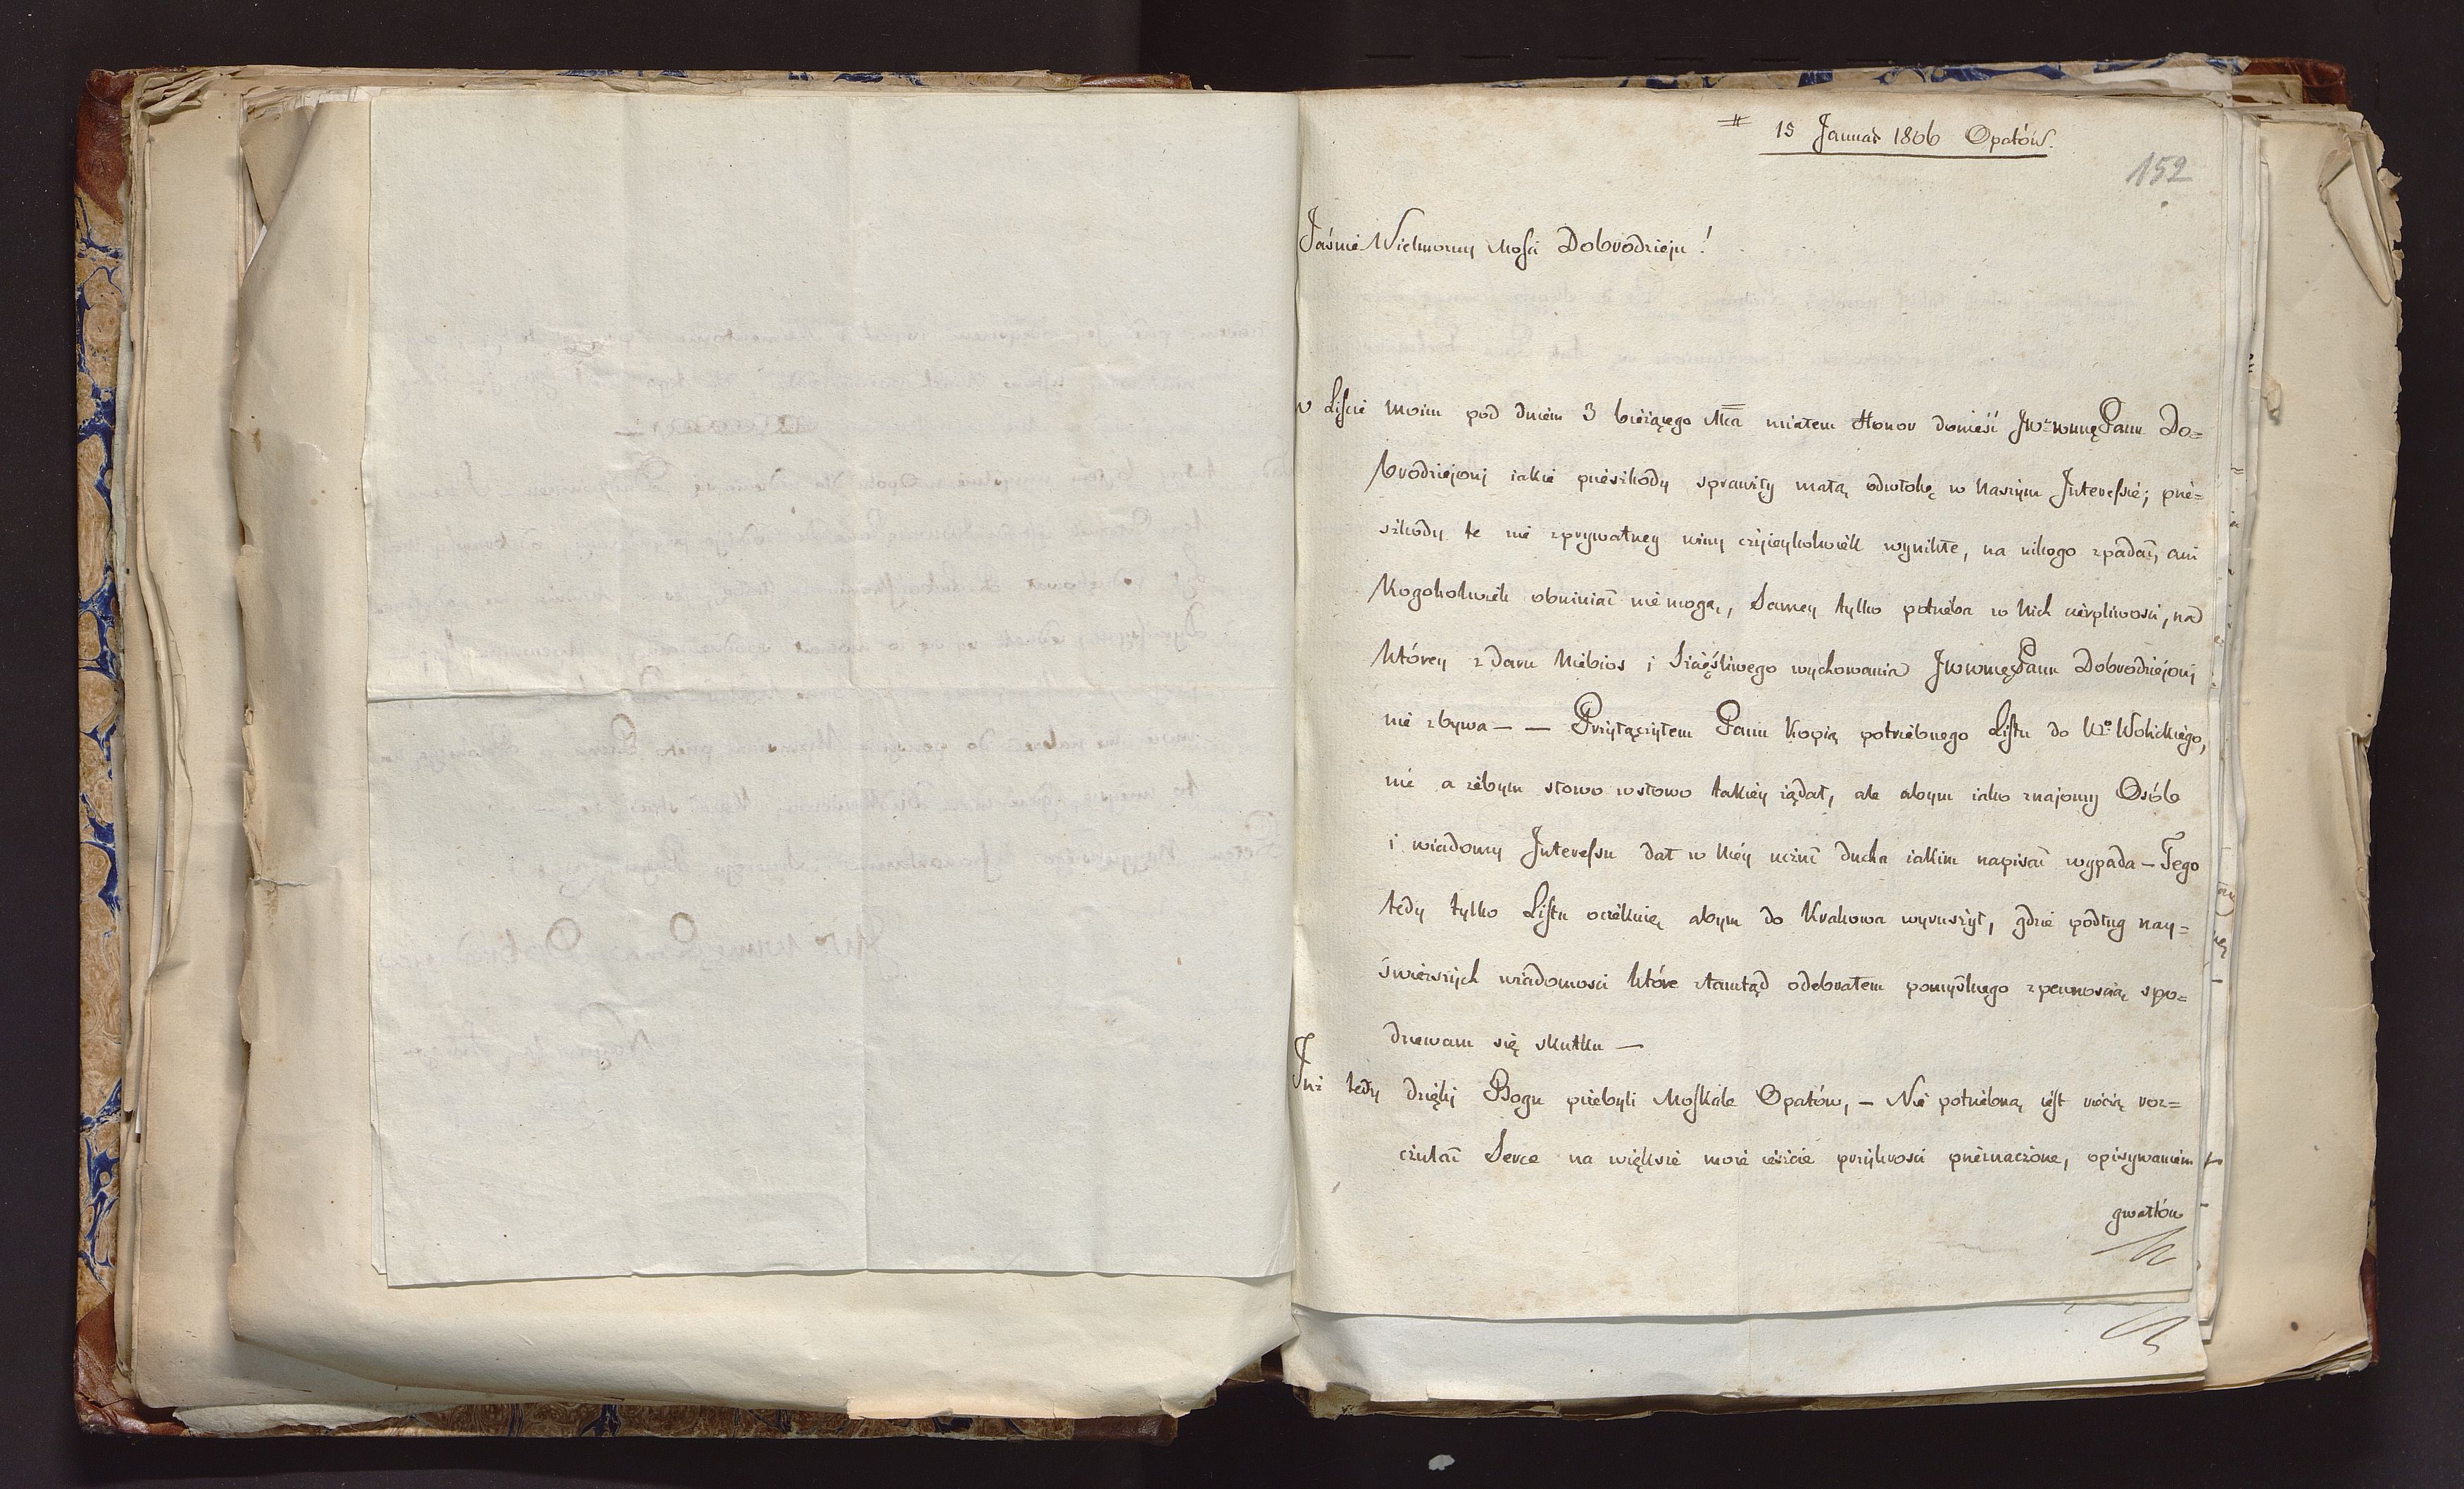 # 15 Januar 1806 Opatów.
152
Jaśnie Wielmozny Mosci Dobrodzieju!
w Liscie moim pod dniem 3 bieżącego Mca miałem Honor donieść JWwmę Panu Do=
brodziejowj iakie przeszkody sprawiły małą odwłokę w naszym Interessie; prze=
szkody te nie zprywatney winy czyieykolwiek wynikłe, na nikogo zpadać, ani
kogokolwiek obwiniać nie mogą, Samey tylko potrzeba w nich cierpliwosci, nad
którey z daru Niebios i Szczęśliwego wychowania JWwmę Panu Dobrodziejowj
nie zbywa — — Przyłączyłem Panu kopią potrzebnego Listu do Wo Wolickiego,
nie a żebym słowo wsłowo takiey żądał, ale abym iako znajomy Osób
i wiadomy Interessu dał w niey uczuć ducha iakim napisać wypada — Tego
tedy tylko Listu oczekuię abym do Krakowa wyruszył, gdzie podług nay=
świezszych wiadomosci które ztamtąd odebrałem pomyślnego zpewnoscią spo=
dziewam się skutku —
Już tedy dzięki Bogu przebyli Moskale Opatów, — Nie potrzebną iest rzeczą roz=
czulać Serce na większe moze ieszcze przykrosci przeznaczone, opisywaniem
gwałtów